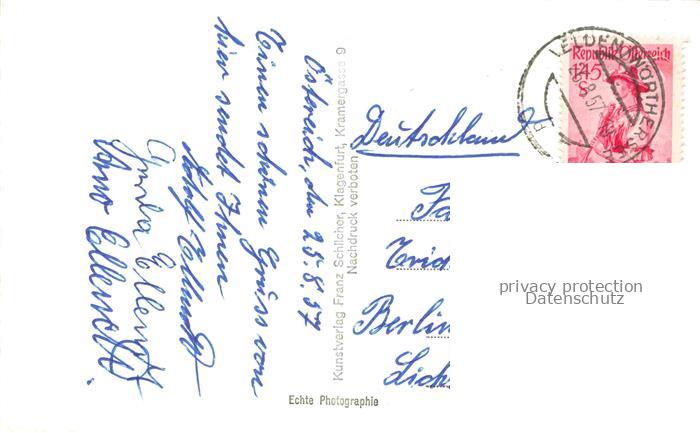 Östereich, den 25.8.57
Einen schönen Gruss von
hier sendet Ihnen
Adolf
Gerda
Kunstverlag Franz Schilcher, Klagenfurt, Kramergasse 9
Nachdruck verboten
Echte Photographie
Deutschland
Fa
Berlin
Lich
Republik Österreich
1.45
S
VELDEN WÖRTHERSEE
25.8.57
privacy protection
Datenschutz